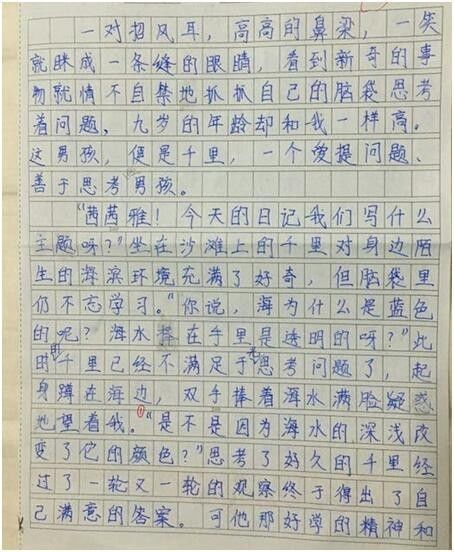 一对招风耳，高高的鼻梁，一笑
就眯成一条缝的眼睛，看到新奇的事
物就情不自禁地抓抓自己的脑袋思考
着问题。九岁的年龄却和我一样高。
这男孩，便是千里，一个爱提问题、
善于思考男孩。
“茜茜雅！今天的日记我们写什么
主题呀？”坐在沙滩上的千里对身边陌
生的海滨环境充满了好奇，但脑袋里
仍不忘学习。“你说，海为什么是蓝色
的呢？海水捧在手里是透明的呀？”此
时千里已经不满足于思考问题了，起
身蹲在海边，双手捧着海水满脸疑惑
地望着我。“是不是因为海水的深浅改
变了它的颜色？”思考了好久的千里经
过了一轮又一轮的观察终于得出了自
己满意的答案。可他那好学的精神和